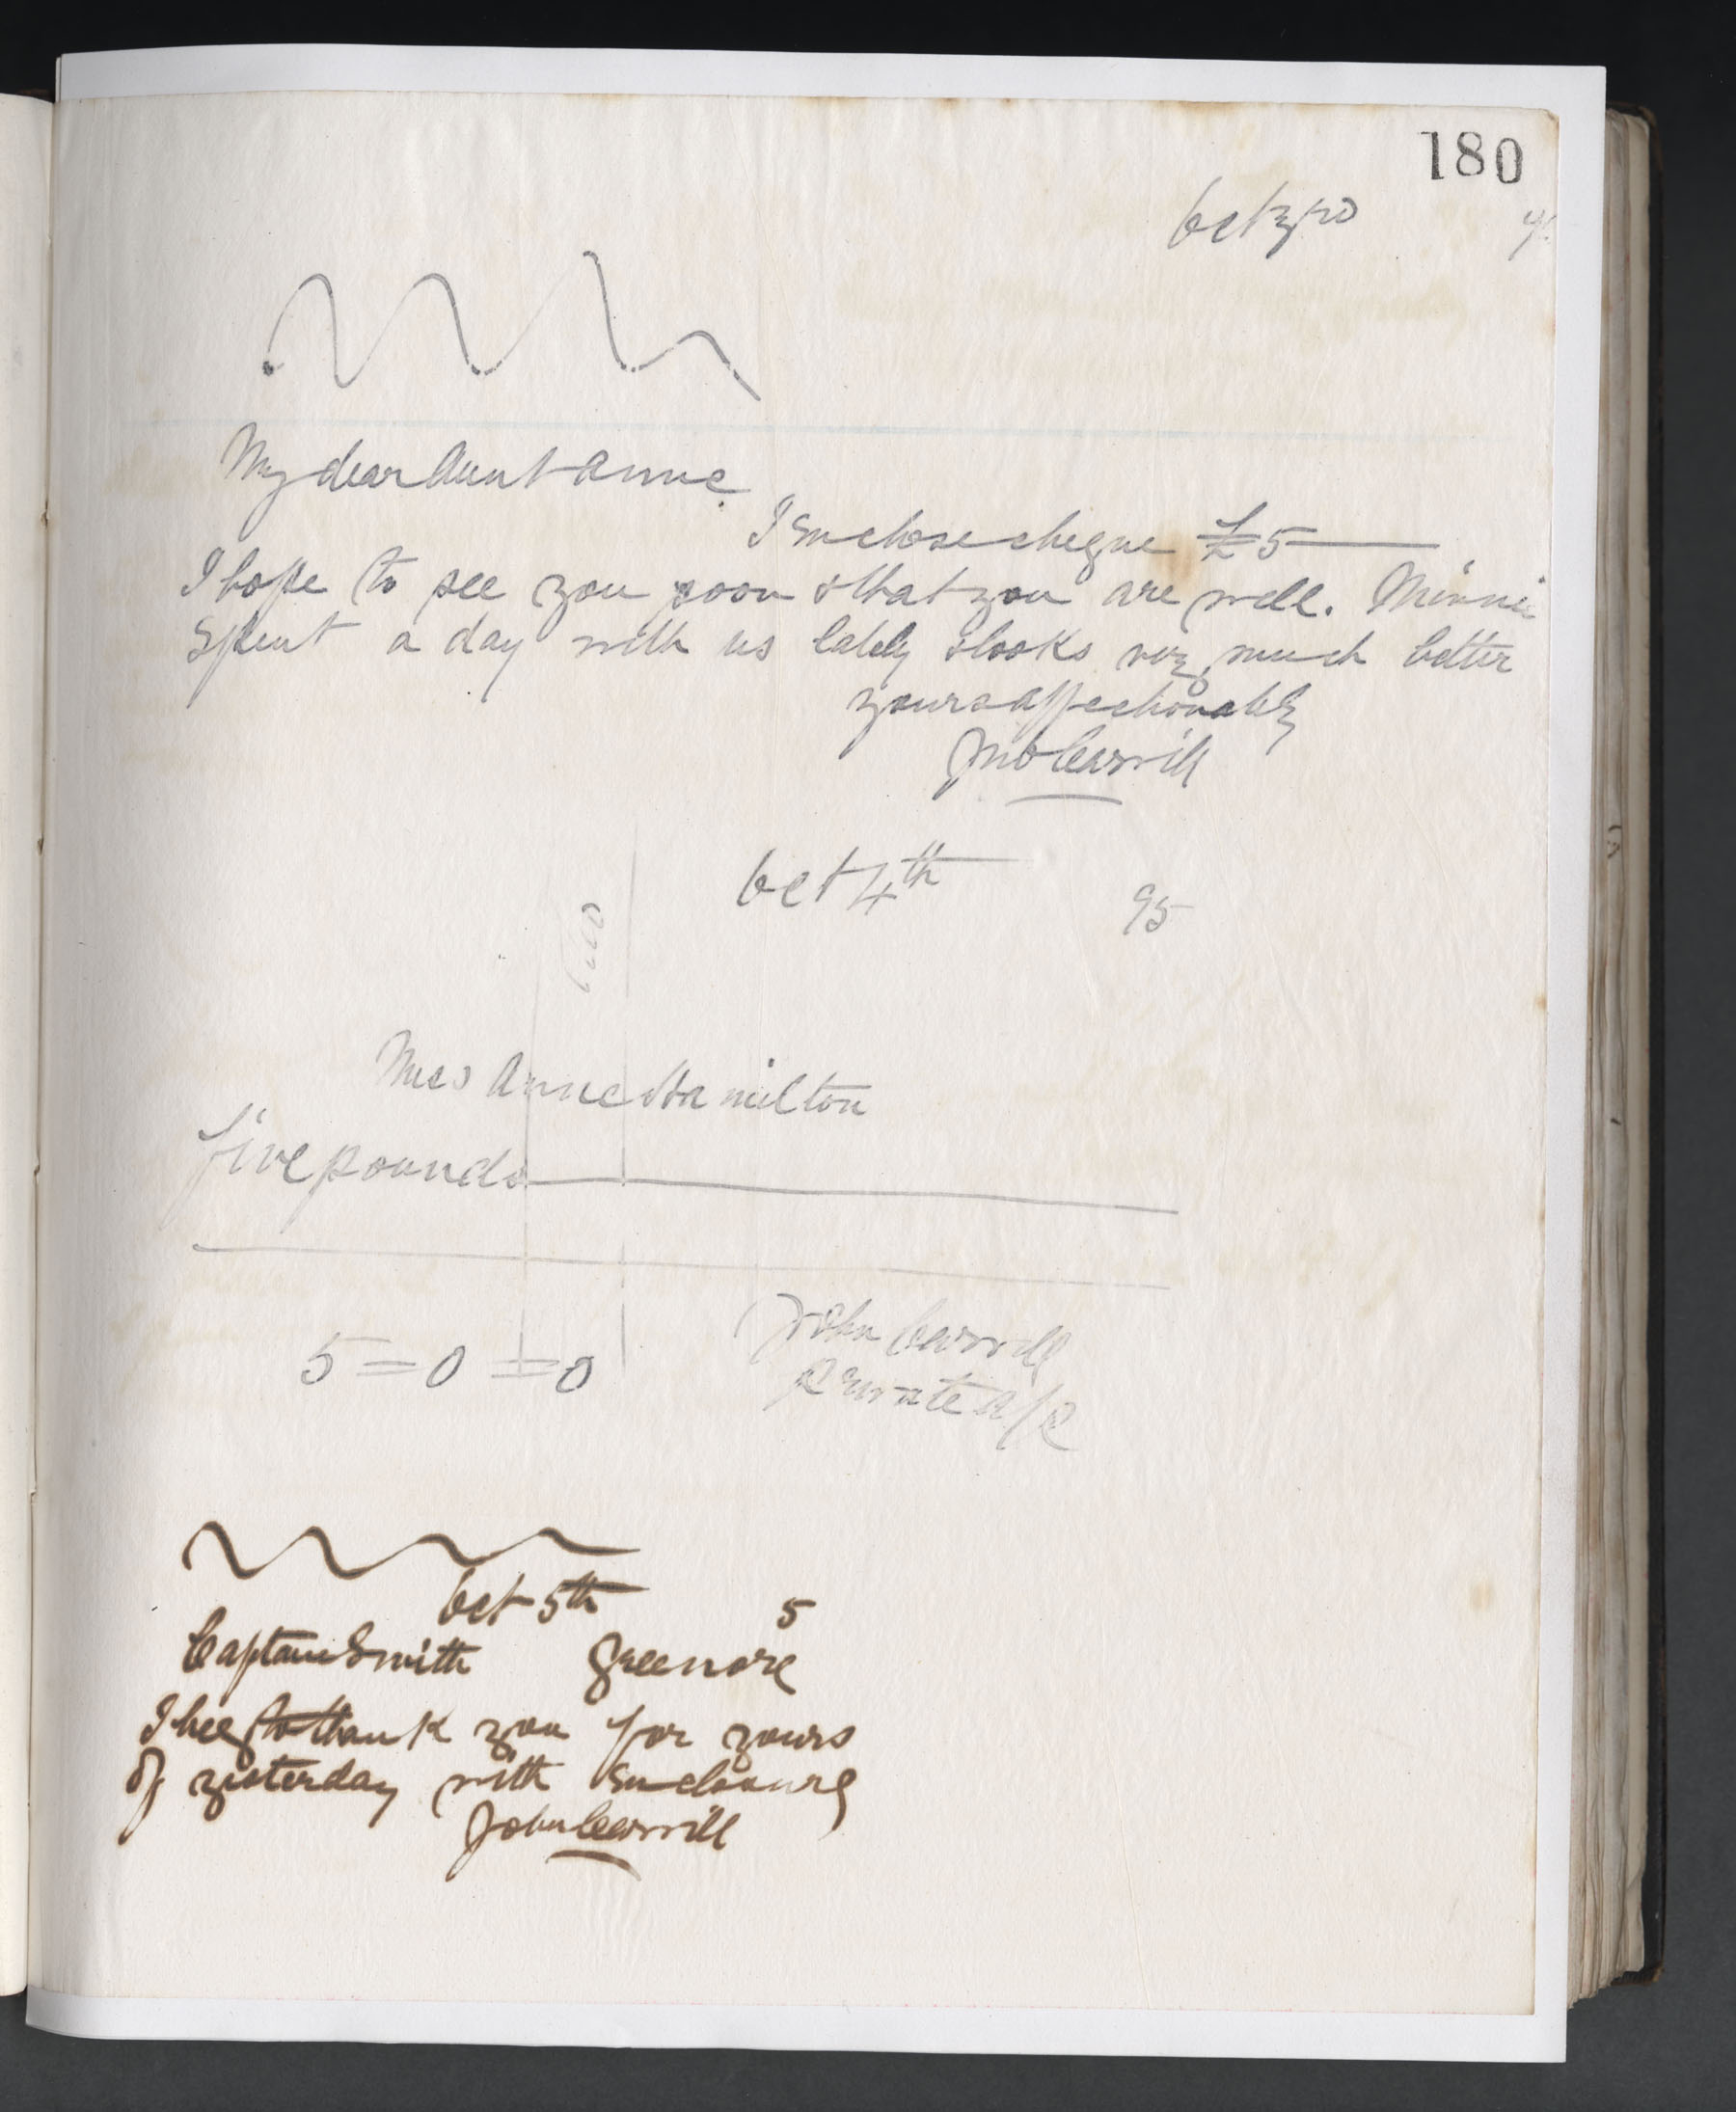 180
Oct 3rd 9
My dear Aunt Anne
I enclose cheque £5
I hope to see you soon & that you are well. Minnie
spent a day with us lately & looks very much better
yours affectionately
Jno Carvill
Oct 4th 95
Miss Anne Hamilton
five pounds
5=0=0
John Carvill
Private a/c
Oct 5th 5
Captain Smith Greenore
I beg to thank you for yours
of yesterday with enclosure
John Carvill